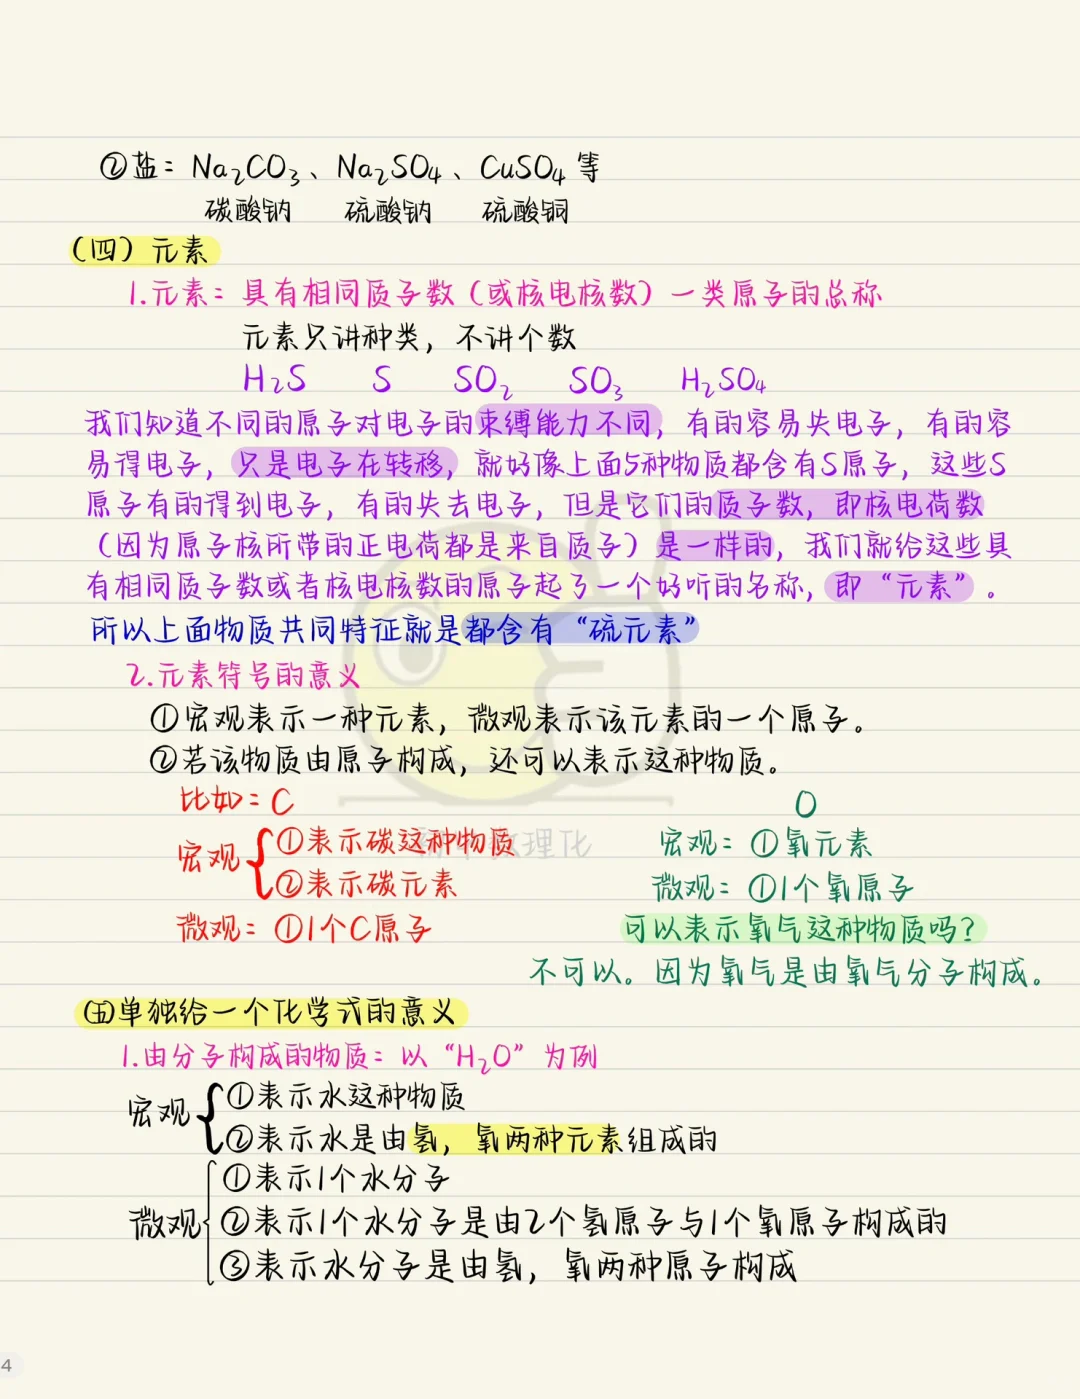 ②盐：Na₂CO₃、Na₂SO₄、CuSO₄等
碳酸钠 硫酸钠 硫酸铜
（四）元素
1.元素：具有相同质子数（或核电核数）一类原子的总称
元素只讲种类，不讲个数
H₂S S SO₂ SO₃ H₂SO₄
我们知道不同的原子对电子的束缚能力不同，有的容易失电子，有的容
易得电子，只是电子在转移，就好像上面5种物质都含有S原子，这些S
原子有的得到电子，有的失去电子，但是它们的质子数，即核电荷数
（因为原子核所带的正电荷都是来自质子）是一样的，我们就给这些具
有相同质子数或者核电核数的原子起了一个好听的名称，即“元素”。
所以上面物质共同特征就是都含有“硫元素”
2.元素符号的意义
①宏观表示一种元素，微观表示该元素的一个原子。
②若该物质由原子构成，还可以表示这种物质。
比如：C
宏观
①表示碳这种物质
②表示碳元素
微观：①1个C原子
O
宏观：①氧元素
微观：①1个氧原子
可以表示氧气这种物质吗？
不可以。因为氧气是由氧气分子构成。
㈤单独给一个化学式的意义
1.由分子构成的物质：以“H₂O”为例
宏观
①表示水这种物质
②表示水是由氢，氧两种元素组成的
微观
①表示1个水分子
②表示1个水分子是由2个氢原子与1个氧原子构成的
③表示水分子是由氢，氧两种原子构成
4